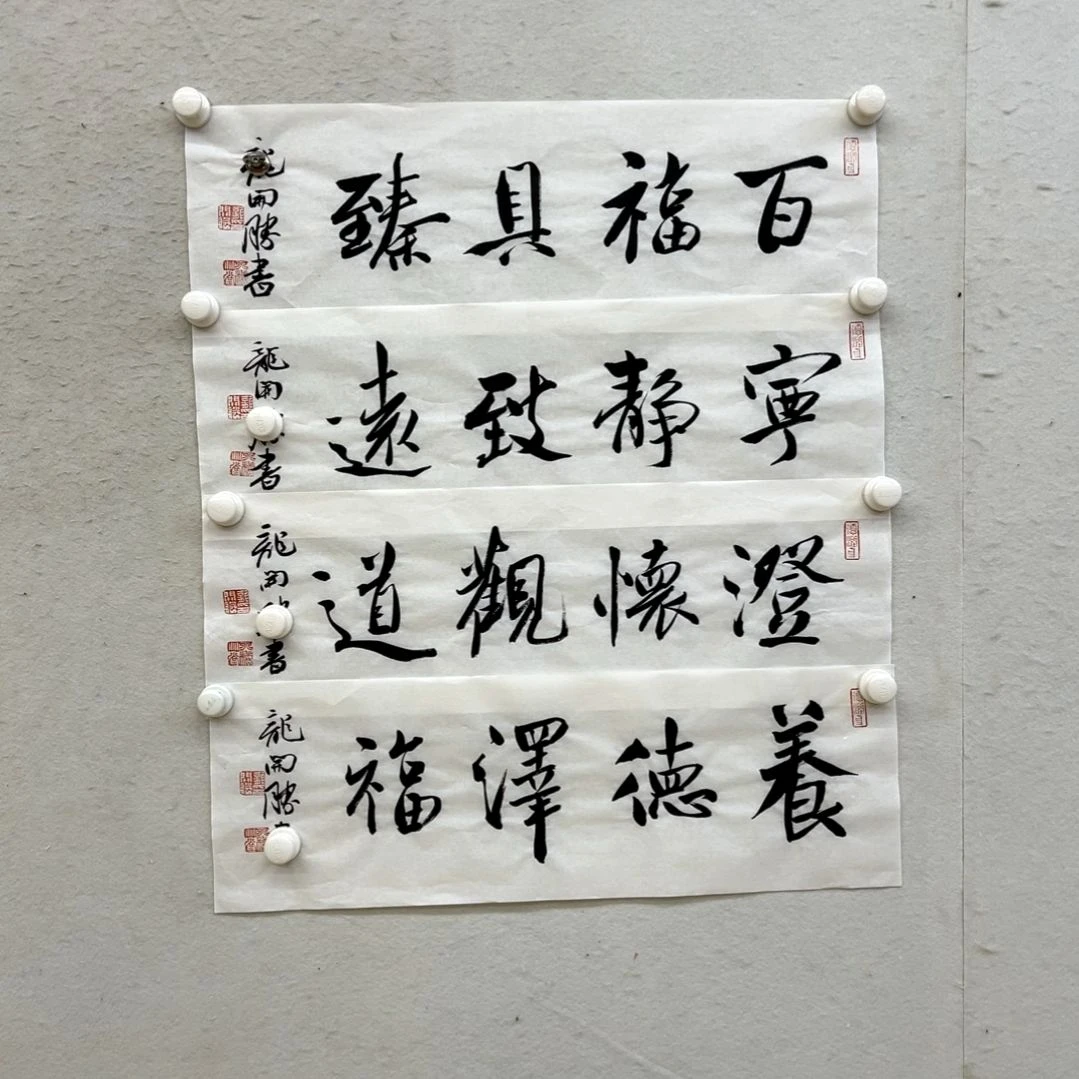 百福具臻
龍開勝書
寧靜致遠
龍開 書
澄懷觀道
龍開 書
養德澤福
龍開勝